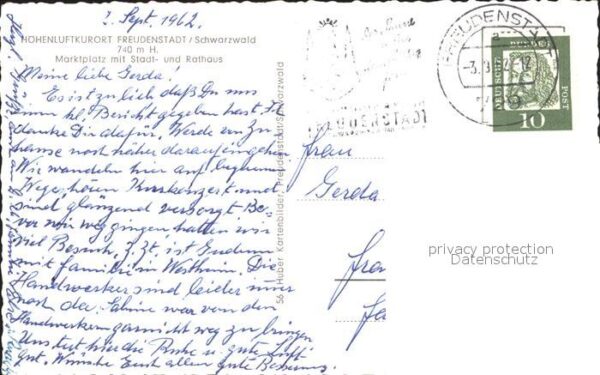 2. Sept. 1962.
HÖHENLUFTKURORT FREUDENSTADT / Schwarzwald
740 m H.
Marktplatz mit Stadt- und Rathaus
Meine liebe Gerda!
Es ist zu lieb daß Du uns
einen kl. Bericht gegeben hast. Ich
danke Dir dafür. Werde von Zu-
hause noch näher darauf eingehen
Wir wandeln hier auf bequemen
Wege, hören Kurkonzert und
sind glänzend versorgt. Be-
vor wir weg gingen hatten wir
viel Besuch, z. Zt. ist Gudrun
mit Familie in Westheim. Die
Handwerker sind leider immer
noch da. Sabine war von den
Handwerkern gar nicht weg zu bringen
Uns tut hier die Ruhe u. gute Luft
gut. Wünsche Euch allen gute Besserung.
56 Huber Kartenbilder, Freudenstadt-Schwarzwald
FREUDENSTADT
FREUDENSTADT
DEUTSCHE BUNDESPOST
10
Frau
Gerda
privacy protection
Datenschutz